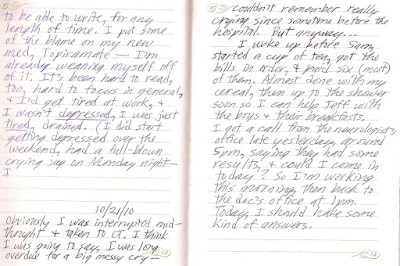 to be able to write, for any
length of time. I put some
of the blame on my new
med, Topiramate – I'm
already weaning myself off
of it. It's been hard to read,
too, hard to focus in general,
& I'd get tired at work, &
I wasn't depressed, I was just
tired, drained. (I did start
getting depressed over the
weekend, had a full-blown
crying jag on Monday night–
I
10/21/10
Obviously I was interrupted mid-
thought & taken to it. I think
I was going to say, I was long
overdue for a big messy cry–
couldn't remember really
crying since sometime before the
hospital. But anyway...
I woke up before 5am,
started a cup of tea, got the
bills in order, & paid six (most)
of them. Almost done with my
cereal, then up to the shower
soon so I can help Jeff with
the boys & their breakfasts.
I got a call from the neurologist's
office late yesterday, around
5pm, saying they had some
results, & could I come in
today? So I'm working
this morning, then back to
the doc's office at 1pm.
Today, I should have some
kind of answers.